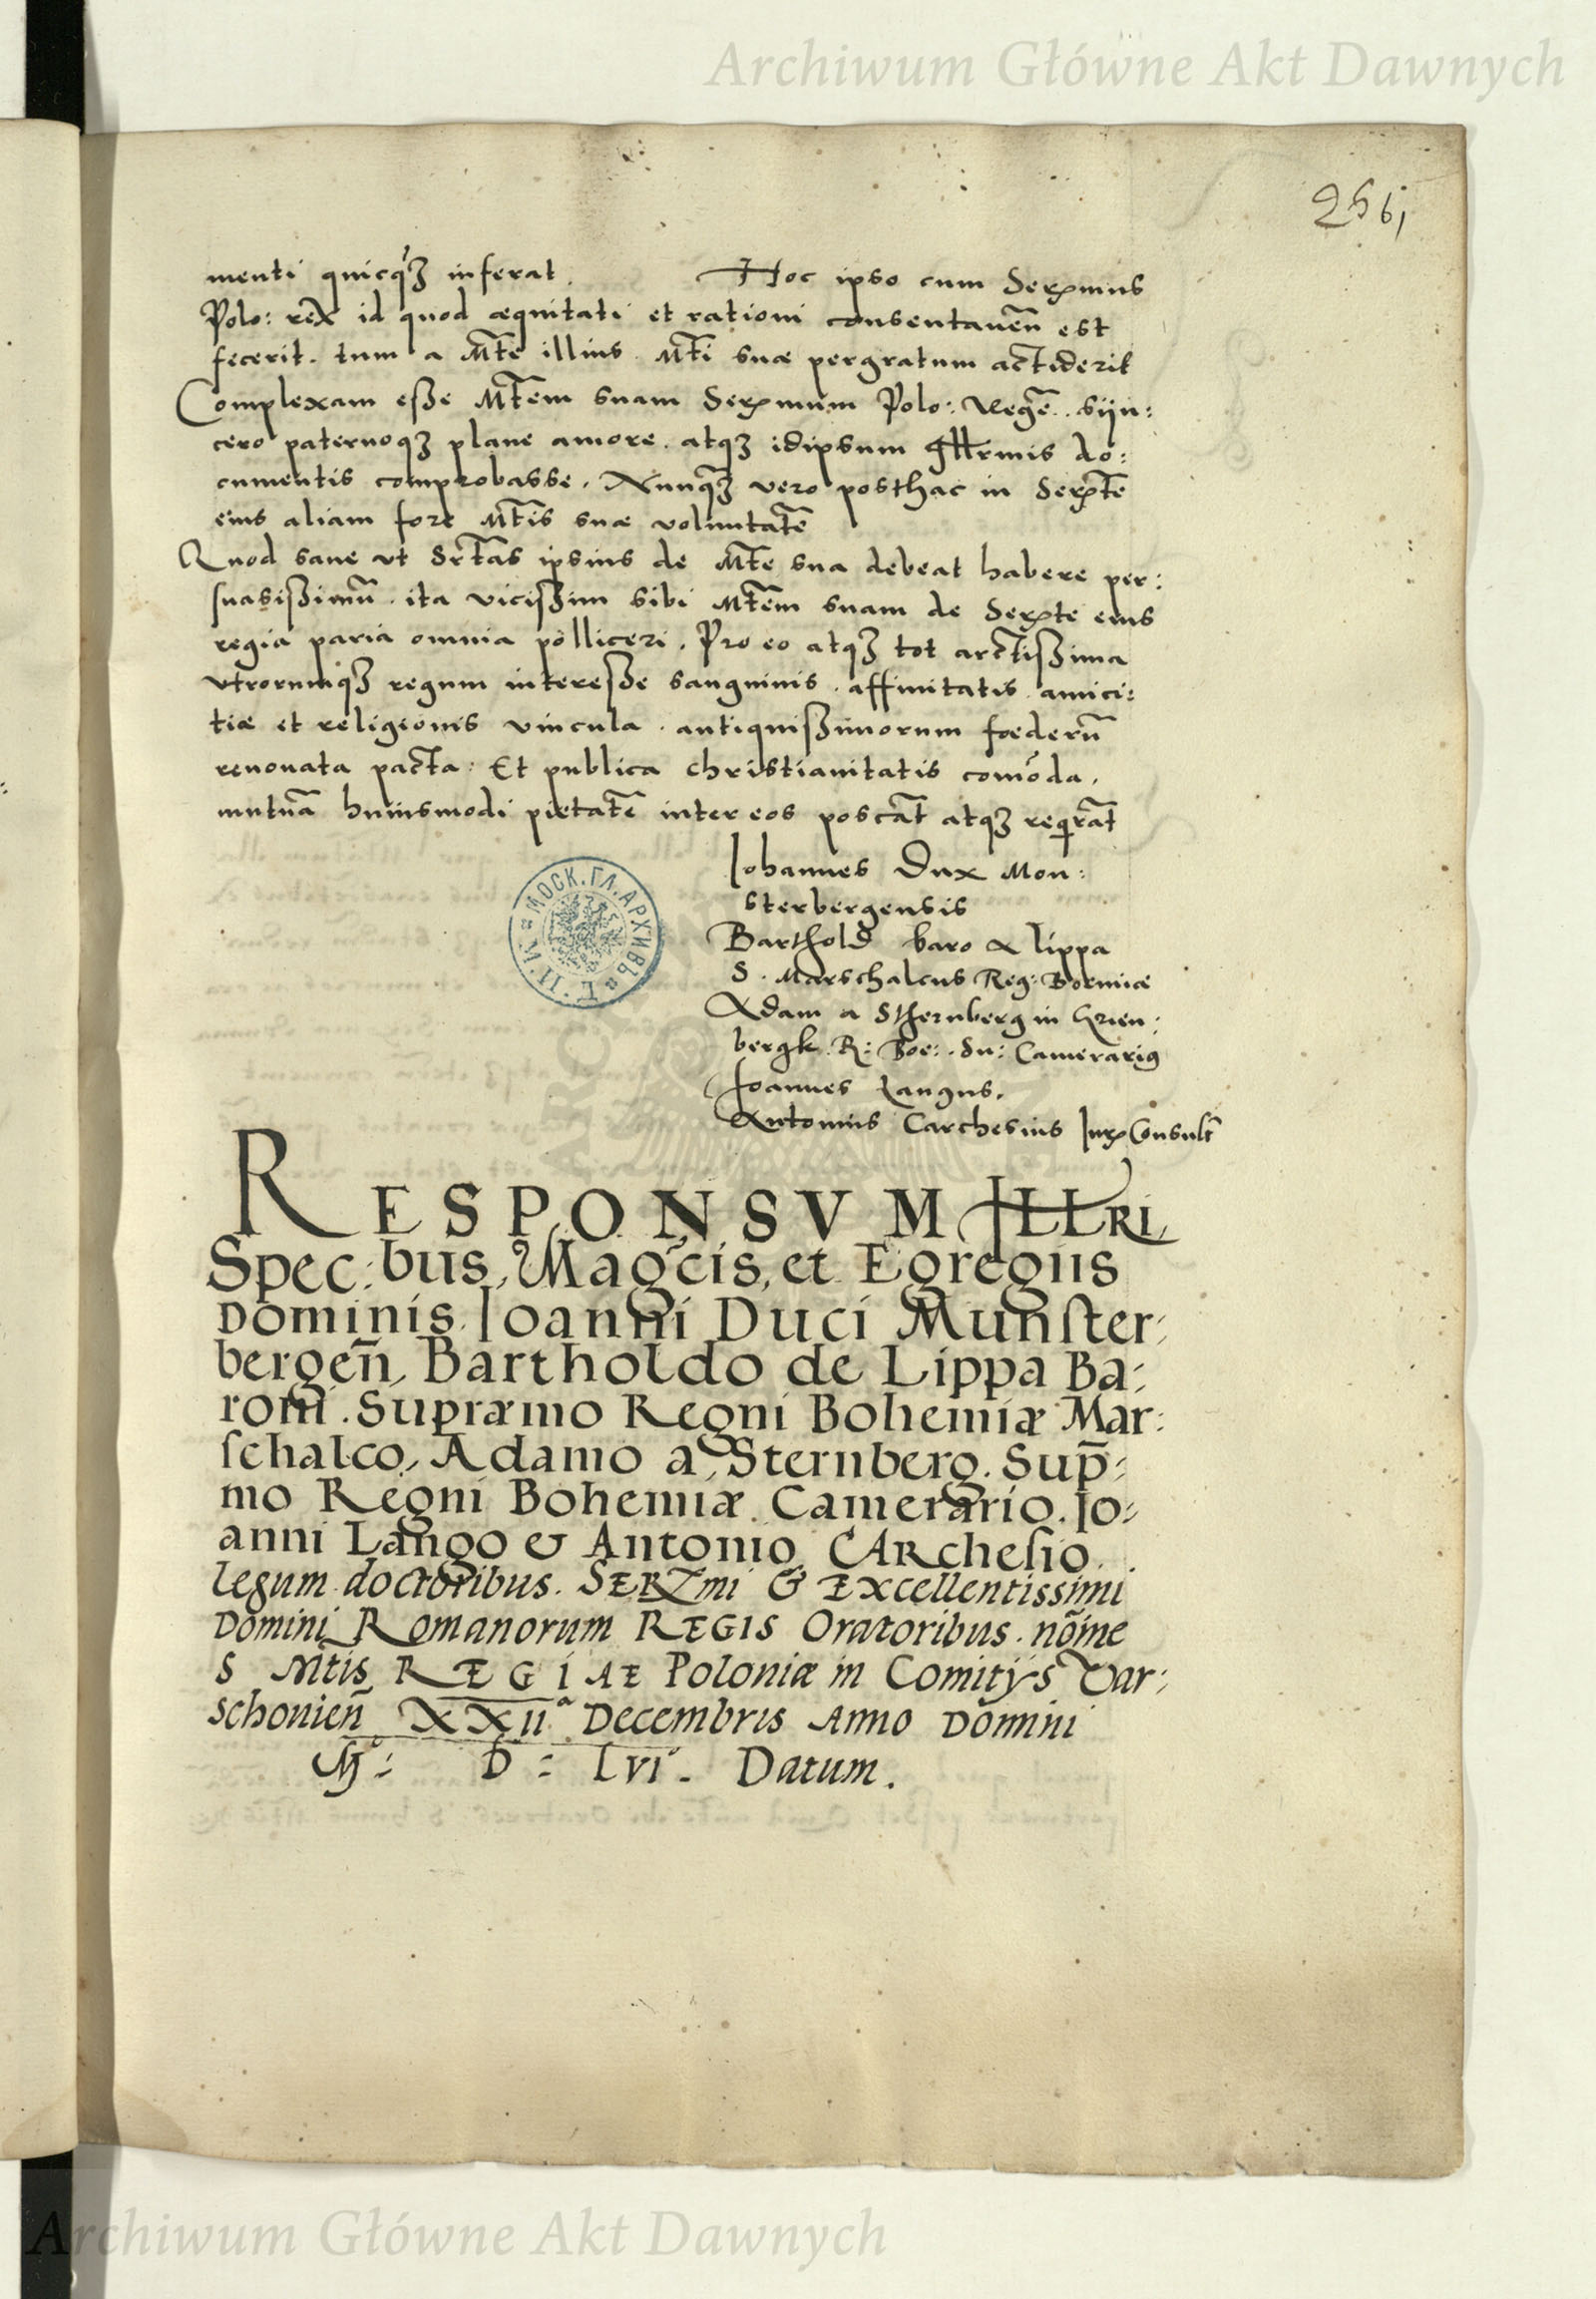 Archiwum Główne Akt Dawnych
256j
menti quicq'ȝ inferat. Hoc ipso cum Serꝫmus
Polo: rex̃ id quod æquitati et rationi consentaneũ est
fecerit. tum a Mt̃e illius. Mt̃i suæ pergratum acciderit
Complexam eſse Mt̃em suam Serꝫmum Polo: Regẽ. siin:
cero paternoqȝ plane amore. atqȝ idipsum do:
cumentis comprobasse. Nunq̃ȝ vero posthac in Serꝫt̃e
eius aliam fore Mt̃is suæ voluntatẽ
Quod sane ut Srt̃as ipsius de Mt̃e sua debeat habere per:
suasiſsimũ. ita viciſsim sibi Mt̃em suam de Serꝫte eius
regia paria omnia polliceri. Pro eo atqȝ tot arctiſsima
vtrorumqȝ regum intereſse sanguinis. affinitatis. amici:
tiæ et religionis vincula. antiquiſsimorum fœderũ
renouata pacta: Et publica christianitatis com̃oda.
mutuã huiusmodi pietatẽ inter eos poscãt atqȝ reqirãt
МОСК. ГЛ. АРХИВЪ
Iohannes Dux Mon:
sterbergensis
Barthold baro a lippa
S. Marschalcus Reg: Boemiæ
Adam a Sthernberg in Grien:
bergk. R: Boe: Su: Camerariꝰ
Joannes Langus.
Antonius Carchesius Jurꝫ Consult̃
RESPONSVM ILLRI,
Spec:bus, Mag̃cis, et Egregiis
Dominis. Ioanni Duci Munſter:
bergen̄, Bartholdo de Lippa Ba:
roni. Supræmo Regni Bohemiæ Mar:
ſchalco, Adamo a, Sternberg. Sup̄:
mo Regni Bohemiæ. Camerario. Io:
anni Lango & Antonio CARcheſio.
legum doctoribus. SERꝫmi & Excellentissimi
Domini Romanorum REGIS Oratoribus. nõie
S Mt̃is REGIAE Poloniæ in Comitijs Var:
schonien̄ XXII.ª Decembris Anno Domini
M°: D: LVI°. Datum.
Archiwum Główne Akt Dawnych